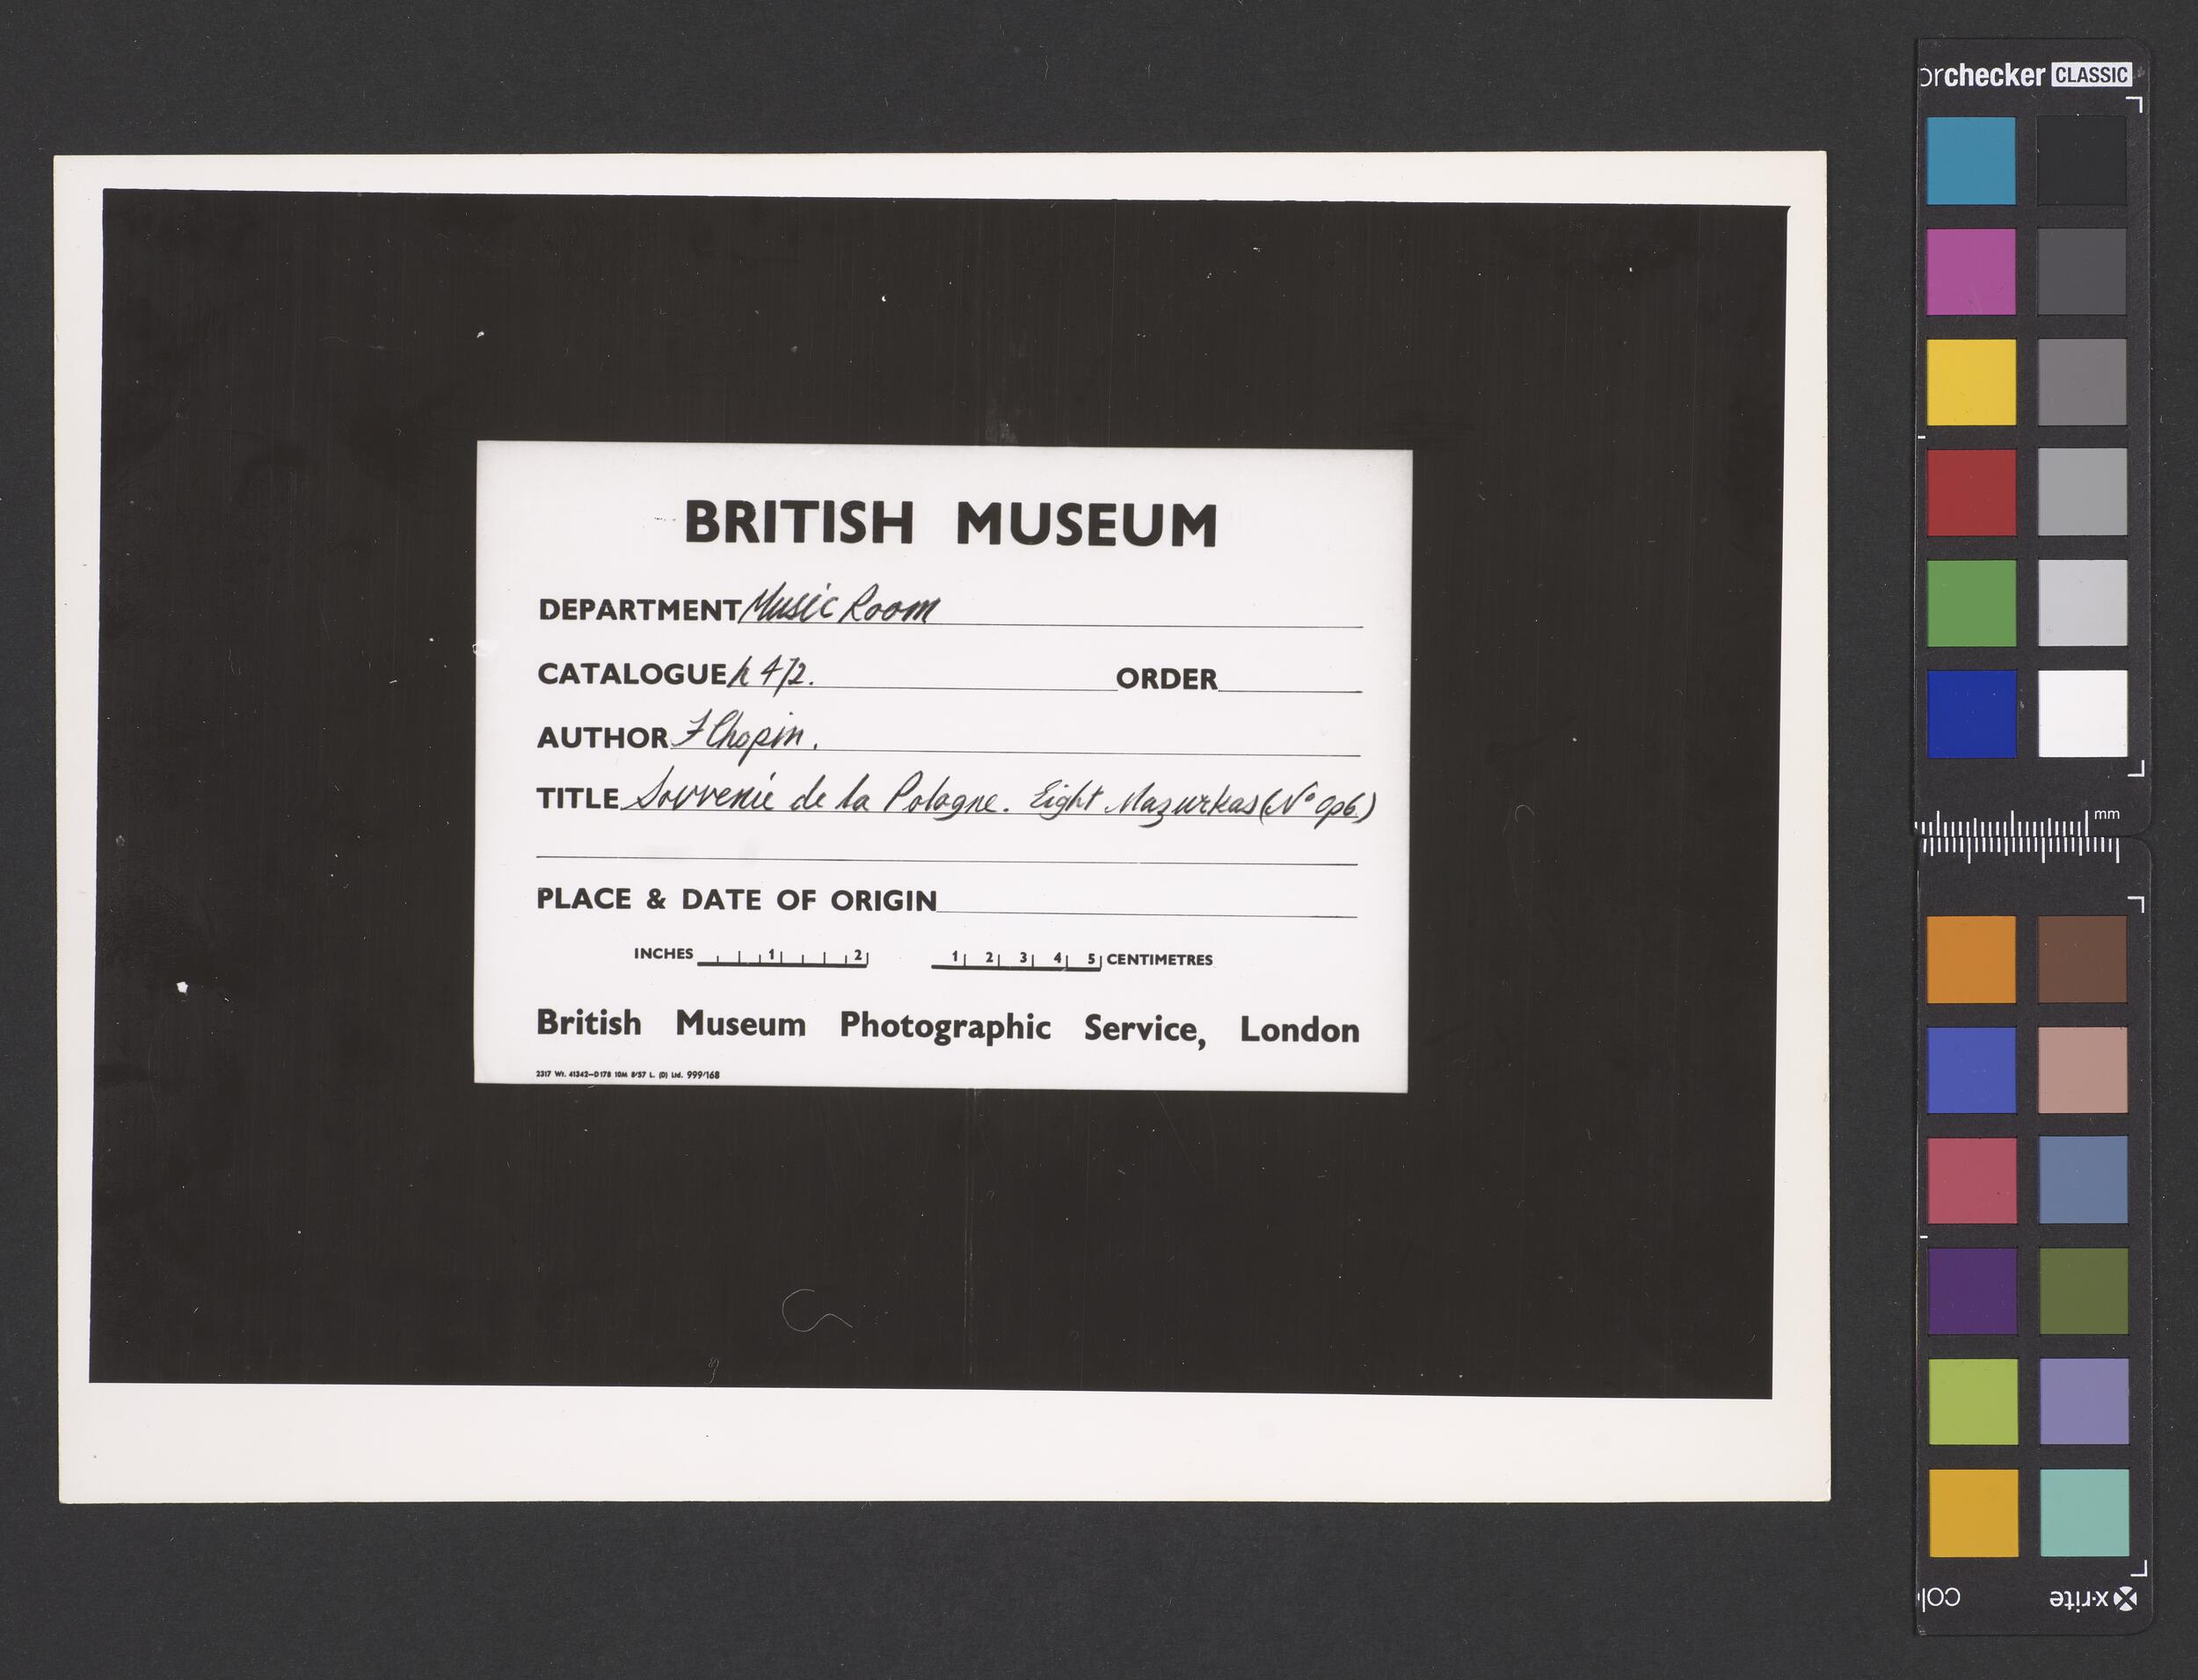 BRITISH MUSEUM
DEPARTMENT Music Room
CATALOGUE h 472. ORDER
AUTHOR F Chopin.
TITLE Souvenir de la Pologne. Eight Mazurkas (Nº op6.)
PLACE & DATE OF ORIGIN
INCHES 1 2 1 2 3 4 5 CENTIMETRES
British Museum Photographic Service, London
2317 Wt. 41342—D178 10M 8/57 L. (D) Ltd. 999/168
orchecker CLASSIC
mm
x·rite
col